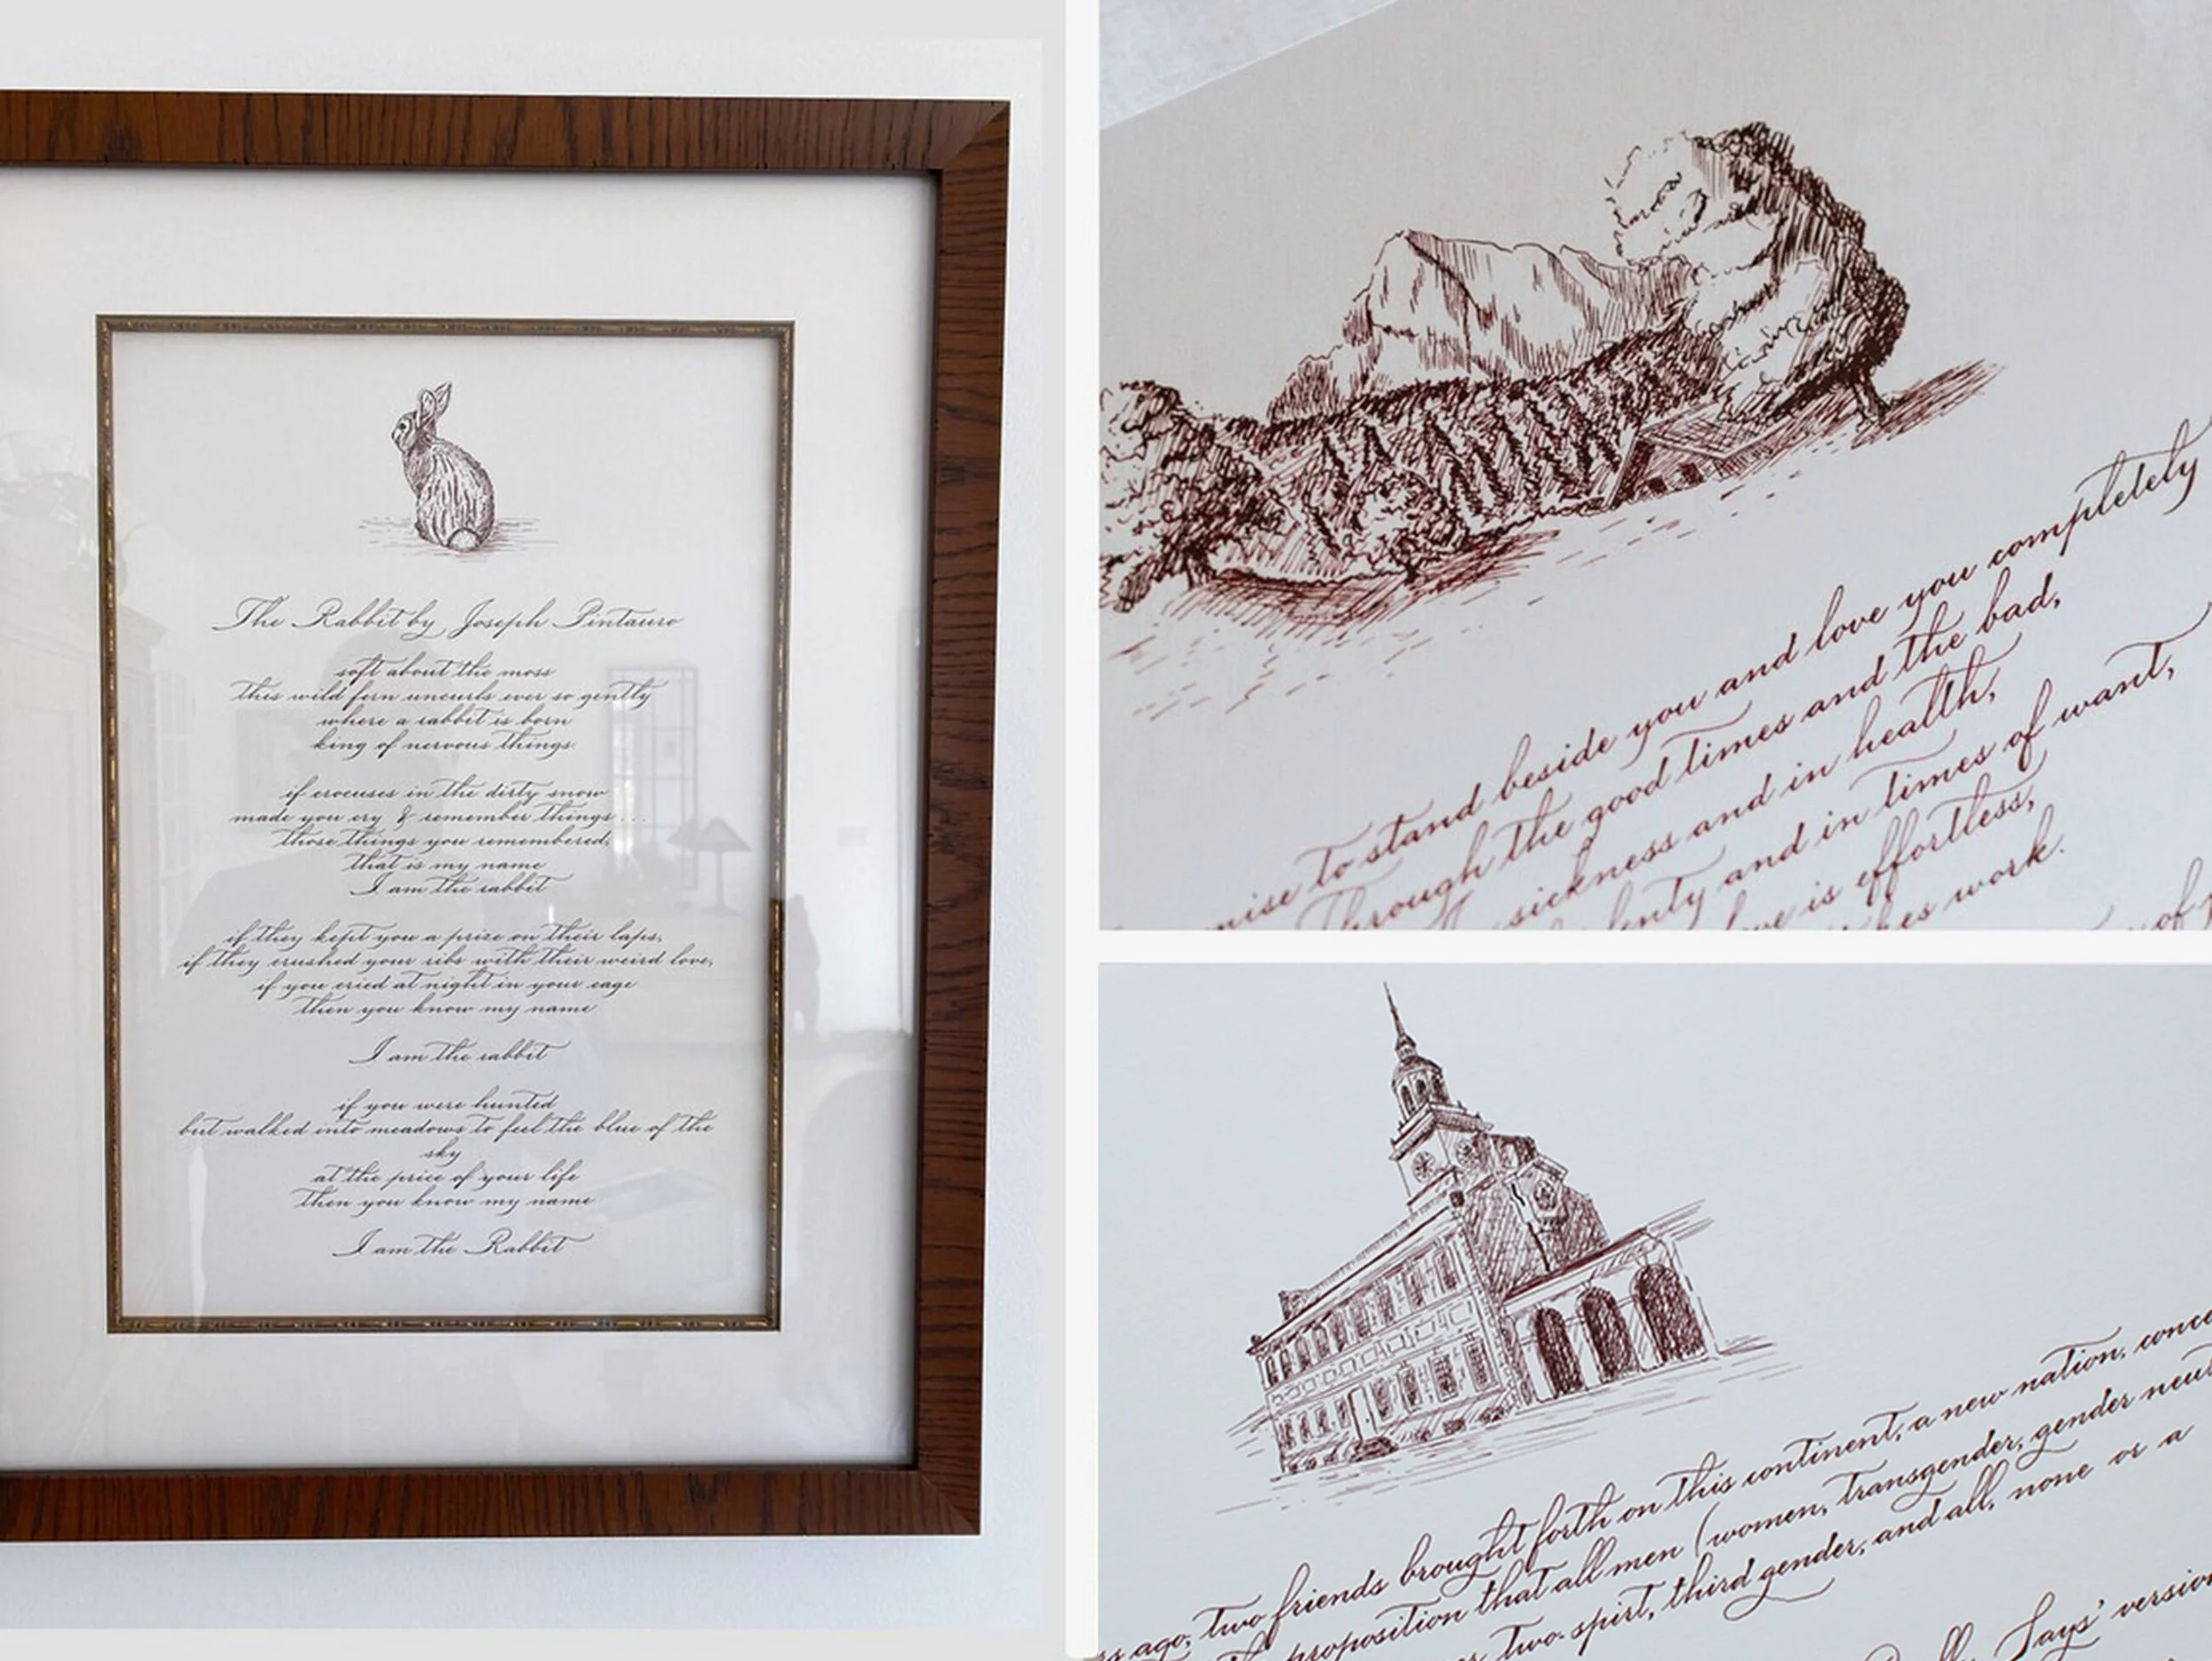 The Rabbit by Joseph Pintauro
soft about the moss
this wild fern uncurls ever so gently
where a rabbit is born
king of nervous things.
if crocuses in the dirty snow
made you cry & remember things . . .
those things you remembered,
that is my name
I am the rabbit
if they kept you a prize on their laps,
if they crushed your ribs with their weird love,
if you cried at night in your cage
then you know my name
I am the rabbit
if you were hunted
but walked into meadows to feel the blue of the
sky
at the price of your life
then you know my name
I am the Rabbit
to stand beside you and love you completely
Through the good times and the bad,
sickness and in health,
and in times of want,
is effortless,
work.
of
ago, two friends brought forth on this continent, a new nation,
proposition that all men (women, transgender, gender
two-spirt, third gender, and all, none or a
Says' version